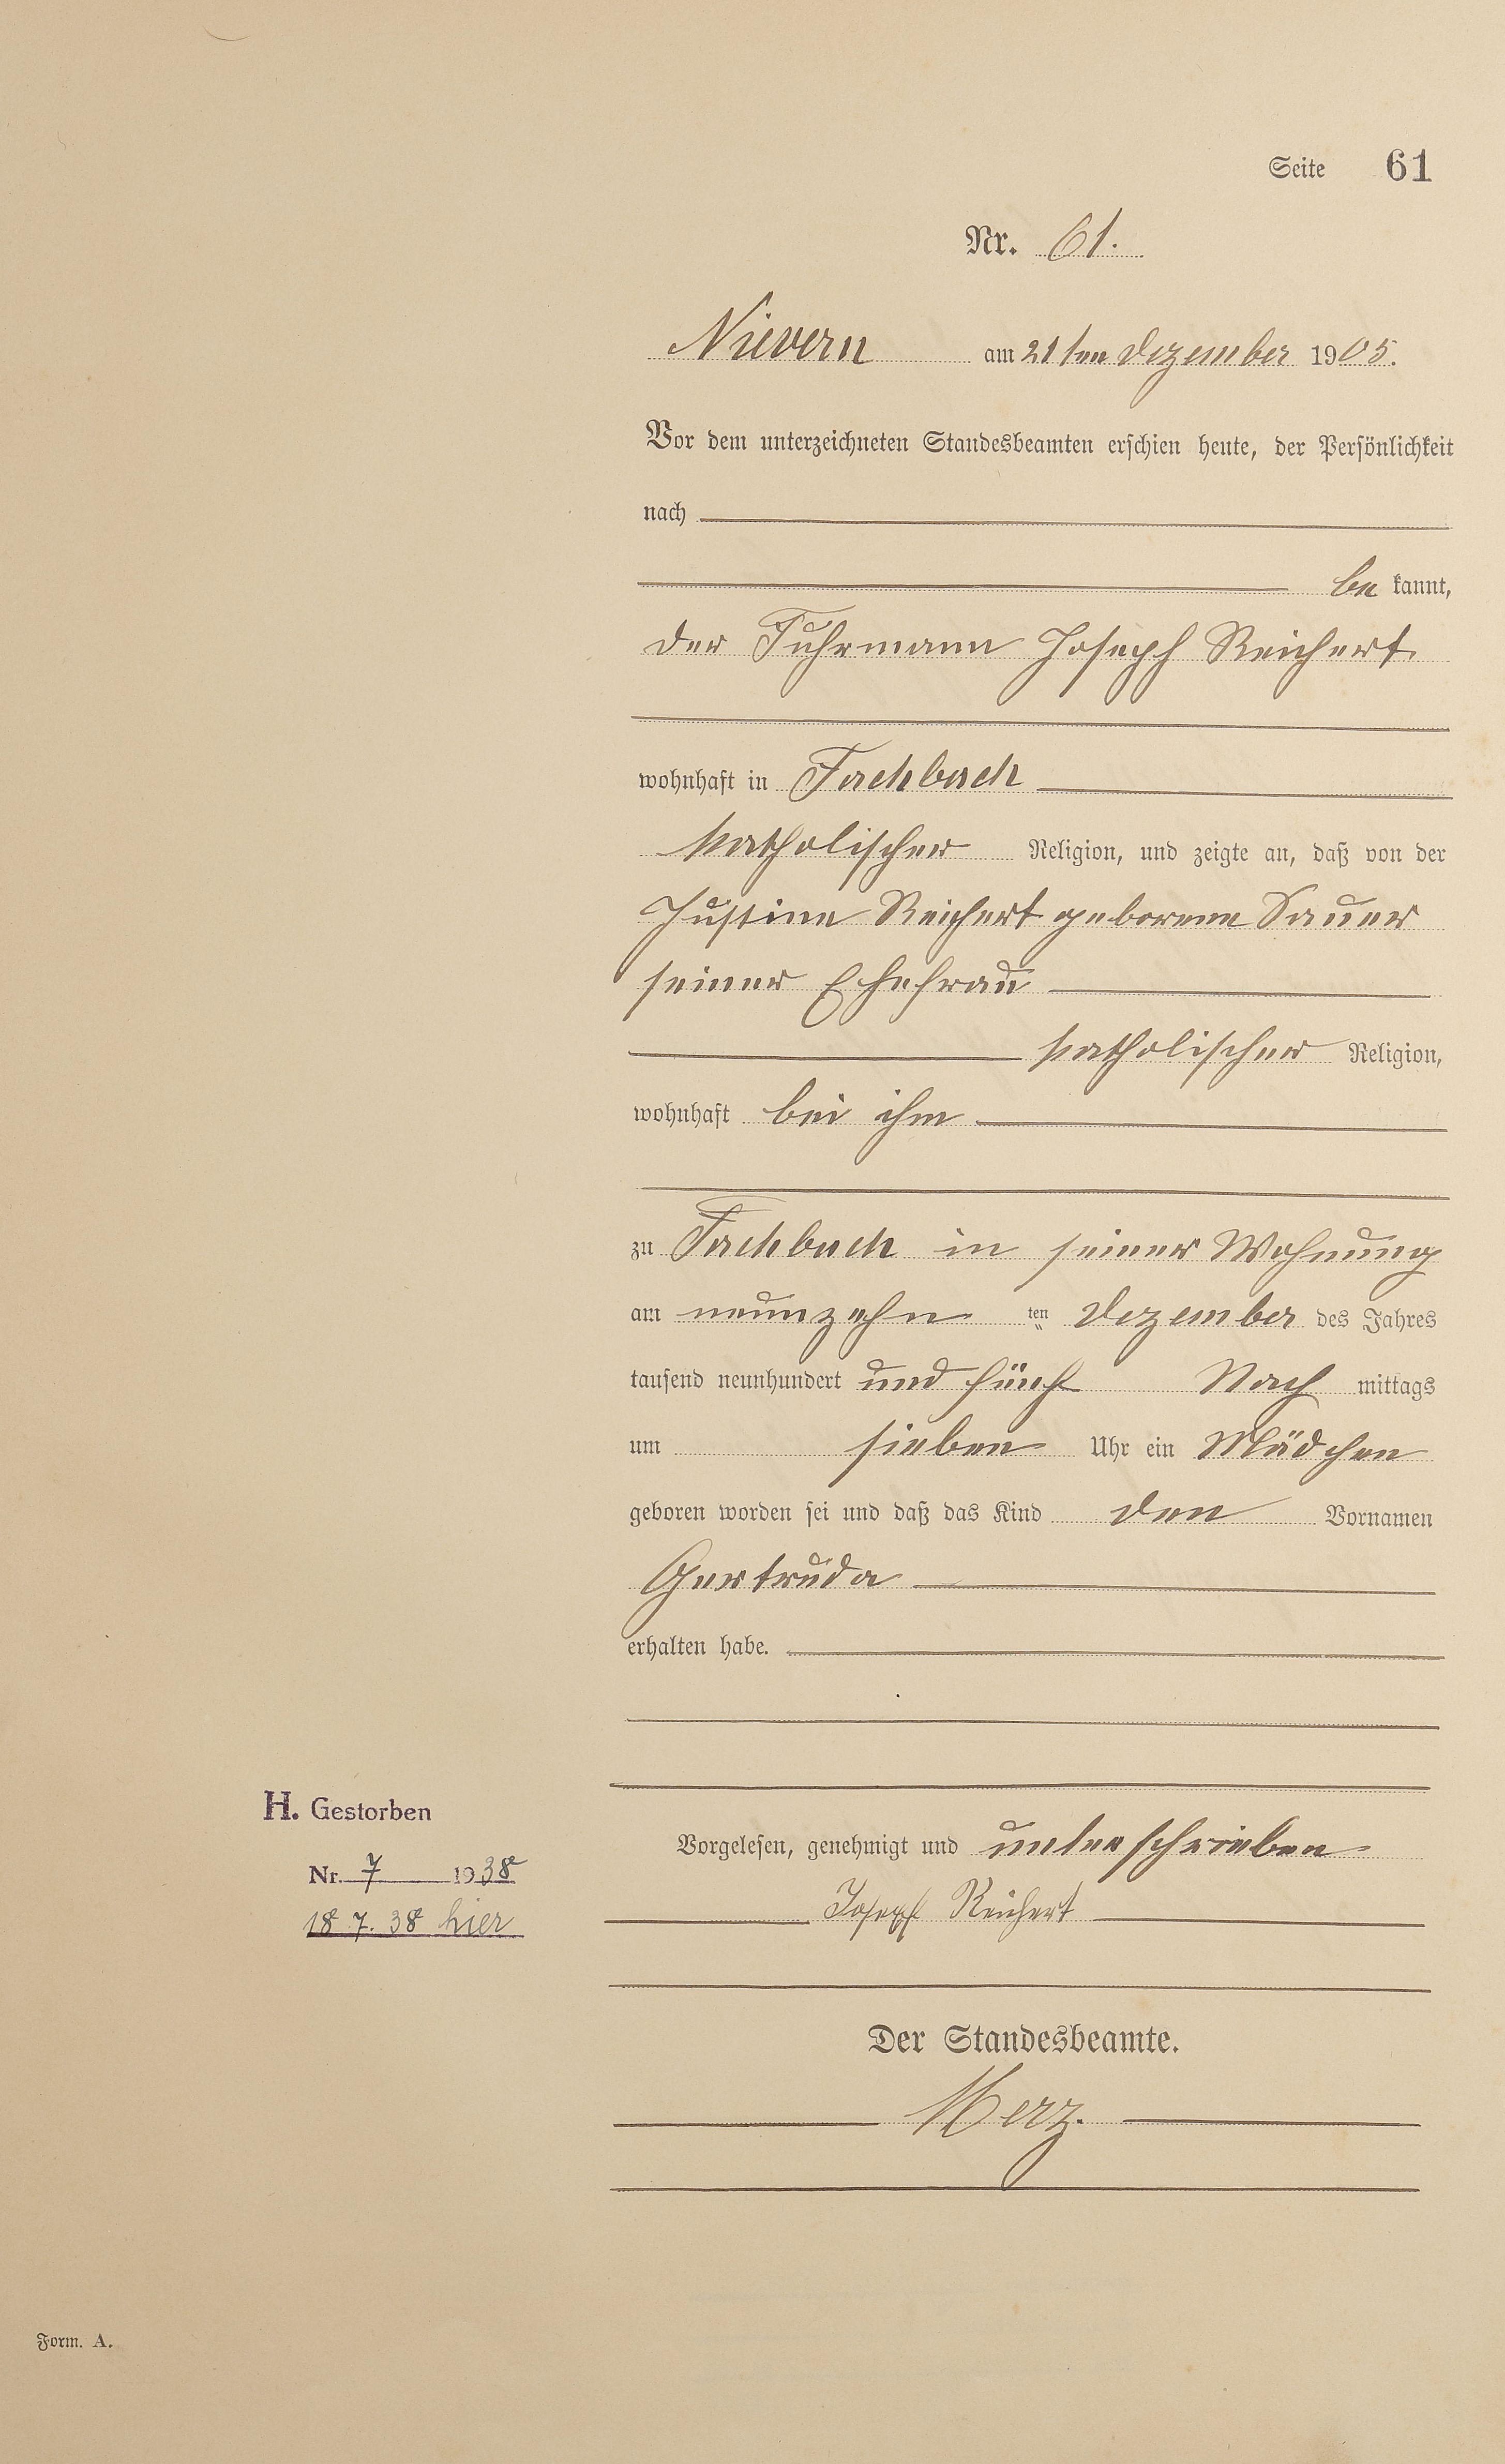 Seite 61
Nr. 61.
Nievern am 21ten Dezember 1905.
Vor dem unterzeichneten Standesbeamten erschien heute, der Persönlichkeit
nach
be kannt,
der Fuhrmann Joseph Reichert
wohnhaft in Fachbach
katholischer Religion, und zeigte an, daß von der
Justina Reichert geborene Sauer
seiner Ehefrau
katholischer Religion,
wohnhaft bei ihm
zu Fachbach in seiner Wohnung
am neunzehn ten Dezember des Jahres
tausend neunhundert und fünf Nach mittags
um sieben Uhr ein Mädchen
geboren worden sei und daß das Kind den Vornamen
Gertruda
erhalten habe.
Vorgelesen, genehmigt und unterschrieben
Joseph Reichert
Der Standesbeamte.
Merz.
H. Gestorben
Nr. 7 1938
18 7. 38 hier
Form. A.